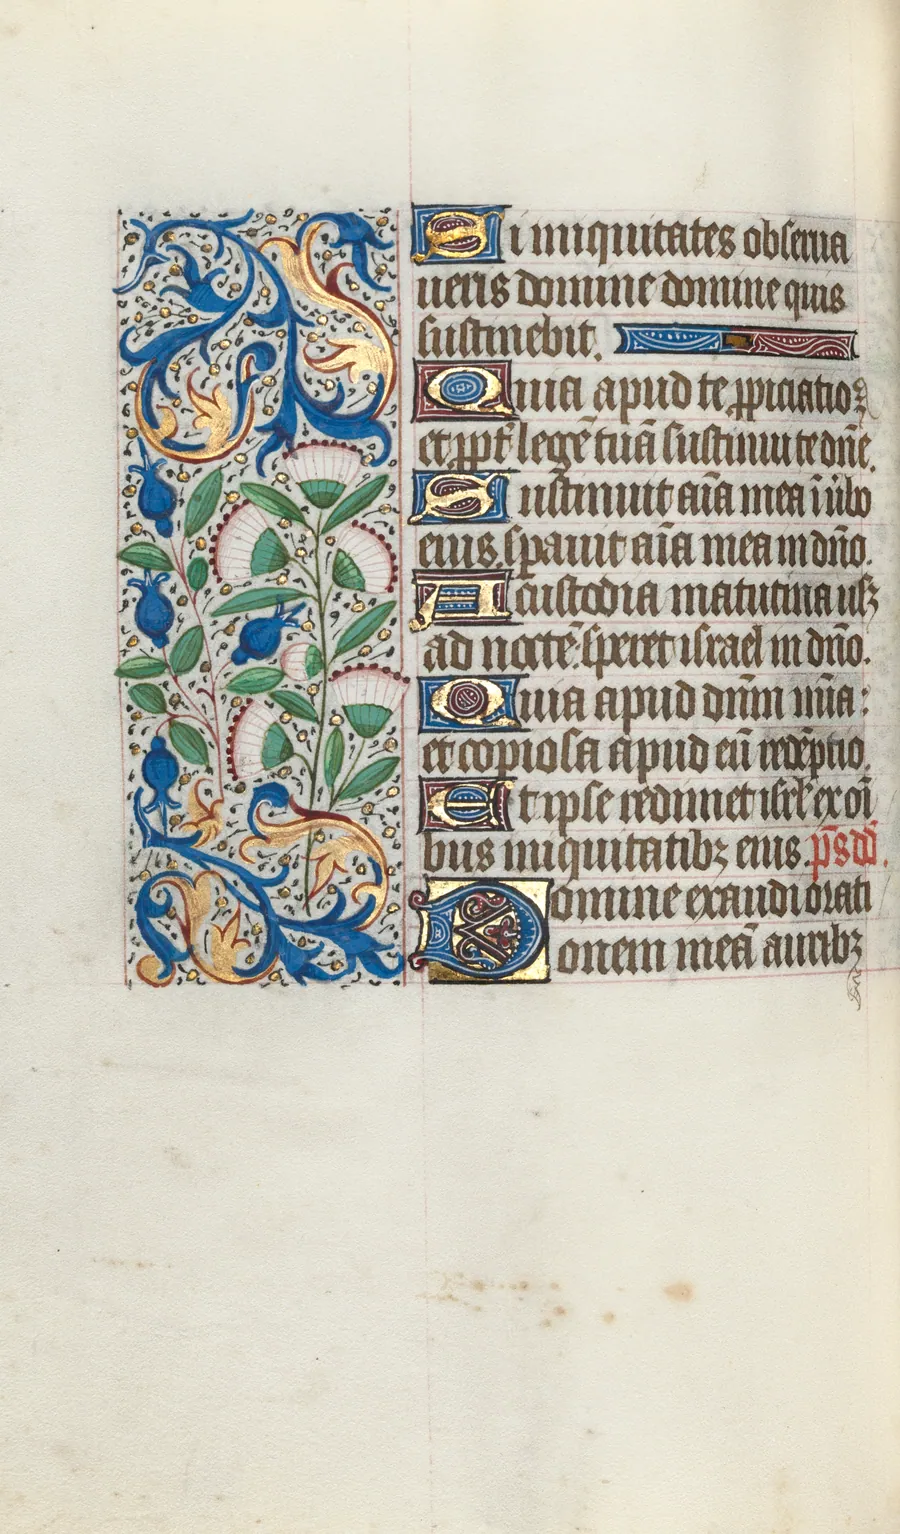 Si iniquitates obserua
ueris domine domine quis
sustinebit.
Quia apud te ꝓpiciatio
et ꝓpt̄ legē tuā sustinui te dn̄e.
Sustinuit aīa mea ī ūbo
eius. sꝑauit aīa mea in dn̄o.
A custodia matutina usqꝫ
ad noctē: speret israel in dn̄o.
Quia apud dn̄m mīa:
et copiosa apud eū redēptio.
Et ipse redimet isrl̄ ex oī
bus iniquitatibꝫ eius. p̄s dd̄.
Domine exaudi orati
onem meā auribꝫ